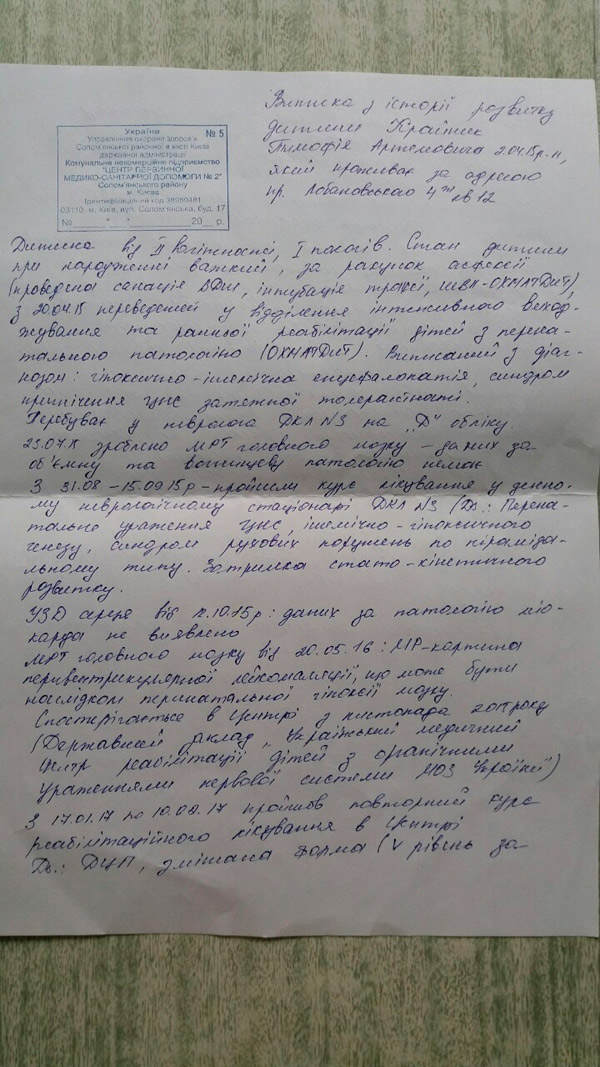 Україна № 5
Управління охорони здоров'я
Солом'янської районної в місті Києві
державної адміністрації
Комунальне некомерційне підприємство
"ЦЕНТР ПЕРВИННОЇ
МЕДИКО-САНІТАРНОЇ ДОПОМОГИ № 2"
Солом'янського району
м. Києва
Ідентифікаційний код 38960481
03110, м. Київ, вул. Солом'янська, буд. 17
№ " " 20 р.
Виписка з історії розвитку
дитини
Тимофія Артемовича 2.04.15р.н,
який проживає за адресою
пр. Лобановського кв 12
Дитина від II вагітності, I пологів. Стан дитини
при народженні важкий, за рахунок асфіксії
(проведена санація ДШ, інтубація трахеї, ШВЛ-ОХМАТДИТ),
з 20.04.15 переведений у відділення інтенсивного виход-
жування та ранньої реабілітації дітей з перина-
тальною патологією (ОХМАТДИТ). Виписаний з діаг-
нозом: гіпоксично-ішемічна енцефалопатія, синдром
пригнічення ЦНС
Перебуває у невролога ДКЛ N3 на "Д" обліку.
23.07.15 зроблено МРТ головного мозку - даних за
об'ємну та вогнищеву патологію немає
З 31.08 - 15.09.15р - пройшли курс лікування у денно-
му неврологічному стаціонарі ДКЛ N3 (Ds: Перина-
тальне ураження ЦНС, ішемічно-гіпоксичного
генезу, синдром рухових порушень по піраміда-
льному типу. Затримка стато-кінетичного
розвитку.
УЗД серця від 10.15р: даних за патологію міо-
карда не виявлено
МРТ головного мозку від 20.05.16: МР-картина
перивентрикулярної лейкомаляції, що може бути
наслідком перинатальної гіпоксії мозку.
Спостерігається в Центрі з листопада року
(Державний заклад "Український медичний
Центр реабілітації дітей з органічними
ураженнями нервової системи МОЗ України")
З 17.01.17 по 10.02.17 пройшов повторний курс
реабілітаційного лікування в Центрі
Ds.: ДЦП, змішана форма (V рівень за